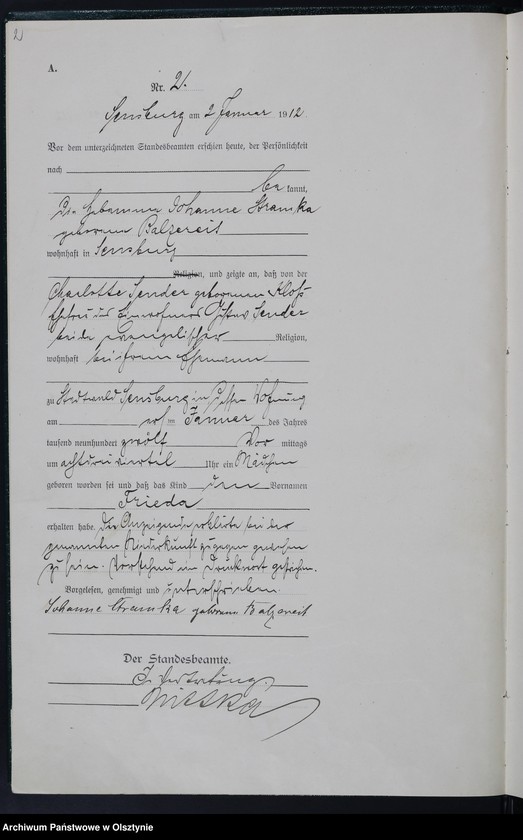 2
A.
Nr. 2.
Sensburg am 2 Januar 1912
Vor dem unterzeichneten Standesbeamten erschien heute, der Persönlichkeit
nach
be kannt,
die Hebamme Johanne Stramka
geborene Balzereit
wohnhaft in Sensburg
Religion, und zeigte an, daß von der
Charlotte Sender geborenen Kloß
Ehefrau des Einwohners Gustav Sender
beide evangelischer Religion,
wohnhaft bei ihrem Ehemann
zu Stadtwald Sensburg in dessen Wohnung
am ersten Januar des Jahres
tausend neunhundert zwölf Vor mittags
um achtdreiviertel Uhr ein Mädchen
geboren worden sei und daß das Kind den Vornamen
Frieda
erhalten habe. Die Anzeigende erklärte bei der
genannten Niederkunft zugegen gewesen
zu sein. Vorstehend ein Druckwort gestrichen.
Vorgelesen, genehmigt und unterschrieben.
Johanne Stramka geborene Balzereit
Der Standesbeamte.
In Vertretung.
Archiwum Państwowe w Olsztynie